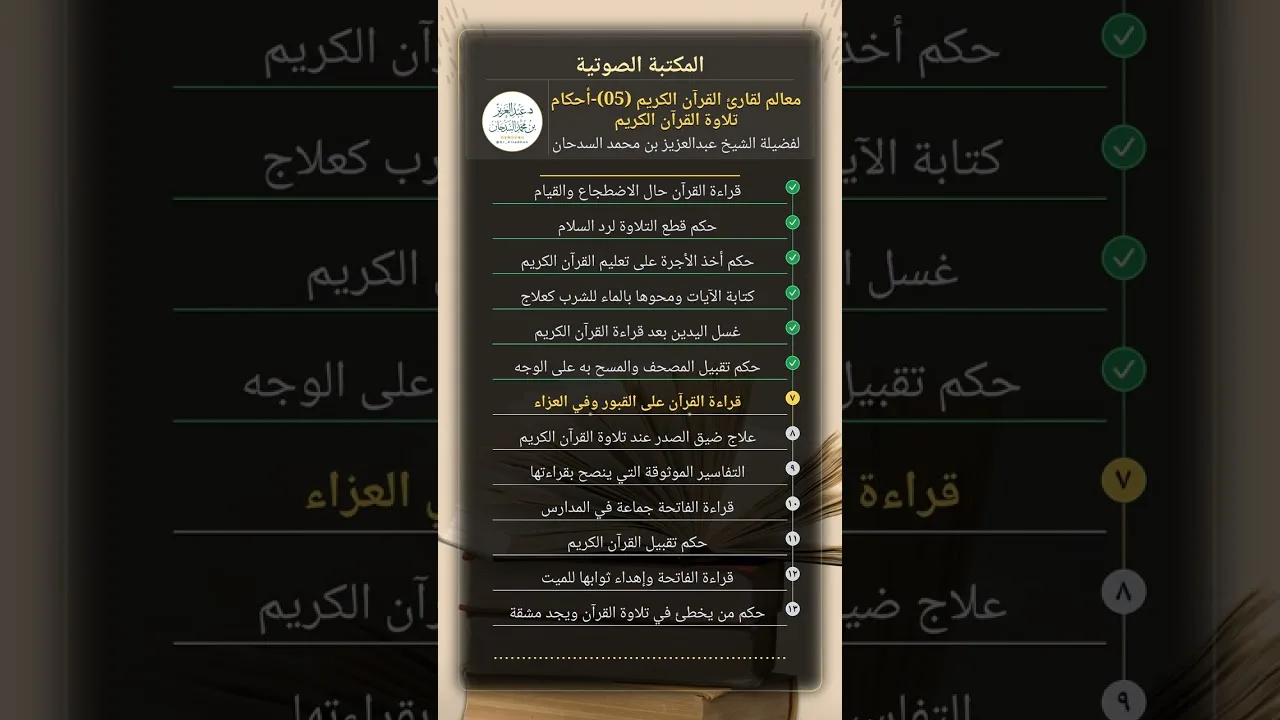 المكتبة الصوتية
معالم لقارئ القرآن الكريم (05)-أحكام
تلاوة القرآن الكريم
لفضيلة الشيخ عبدالعزيز بن محمد السدحان
د. عبد العزيز
بن محمد السدحان
قراءة القرآن حال الاضطجاع والقيام
حكم قطع التلاوة لرد السلام
حكم أخذ الأجرة على تعليم القرآن الكريم
كتابة الآيات ومحوها بالماء للشرب كعلاج
غسل اليدين بعد قراءة القرآن الكريم
حكم تقبيل المصحف والمسح به على الوجه
٧ قراءة القرآن على القبور وفي العزاء
٨ علاج ضيق الصدر عند تلاوة القرآن الكريم
٩ التفاسير الموثوقة التي ينصح بقراءتها
١٠ قراءة الفاتحة جماعة في المدارس
١١ حكم تقبيل القرآن الكريم
١٢ قراءة الفاتحة وإهداء ثوابها للميت
١٣ حكم من يخطئ في تلاوة القرآن ويجد مشقة